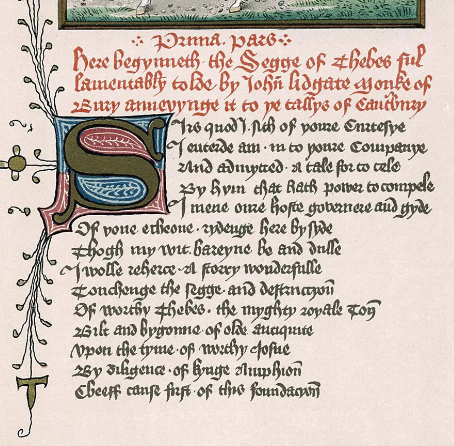 Prima. Pars
Here begynneth the Segge of Thebes ful
lamentably tolde by John lidgate Monke of
Bury annexynge it to þe tallys of Cauntbury
Sirs quod I sith of youre Curtesye
I entrede am in to youre Companye
And admytted a tale for to tele
By hym that hath power to compele
I mene oure hoste governere and gyde
Of youe echeone rydenge here by syde
Thogh my wit bareyne be and dulle
I wolle reherce A story wonderfulle
Touchenge the segge and destruccyon
Of worthy Thebes the myghty royale Ton
Bilt and bygonne of olde antiquite
Vpon the tyme of worthy Josue
By diligence of kynge Amphion
Cheeff cause first of this foundacyon